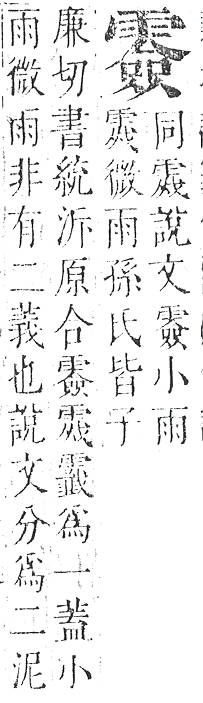 同說文小雨
微雨孫氏皆子
廉切書統泝原合爲一蓋小
雨微雨非有二義也說文分爲二泥